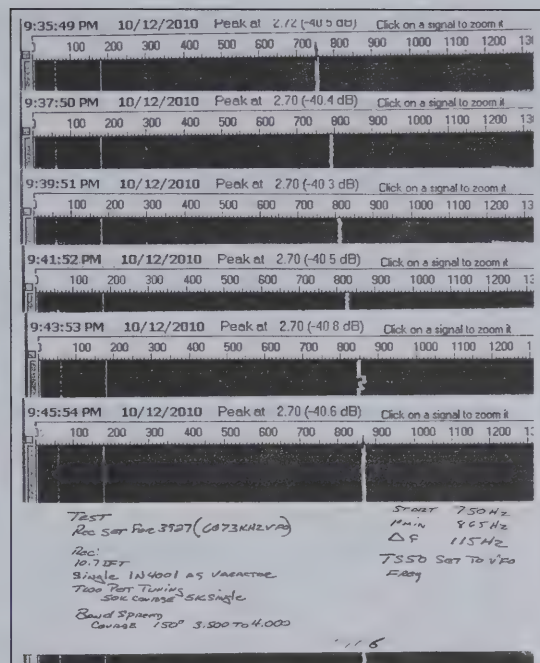 9:35:49 PM 10/12/2010 Peak at 2.72 (-40.5 dB) Click on a signal to zoom it
100 200 300 400 500 600 700 800 900 1000 1100 1200 13
9:37:50 PM 10/12/2010 Peak at 2.70 (-40.4 dB) Click on a signal to zoom it
100 200 300 400 500 600 700 800 900 1000 1100 1200 13
9:39:51 PM 10/12/2010 Peak at 2.70 (-40.3 dB) Click on a signal to zoom it
100 200 300 400 500 600 700 800 900 1000 1100 1200 13
9:41:52 PM 10/12/2010 Peak at 2.70 (-40.5 dB) Click on a signal to zoom it
100 200 300 400 500 600 700 800 900 1000 1100 1200 13
9:43:53 PM 10/12/2010 Peak at 2.70 (-40.8 dB) Click on a signal to zoom it
100 200 300 400 500 600 700 800 900 1000 1100 1200 1
9:45:54 PM 10/12/2010 Peak at 2.70 (-40.6 dB) Click on a signal to zoom it
100 200 300 400 500 600 700 800 900 1000 1100 1200 13
TEST
Rec Set For 3927 (6073KHZ VFO)
Rec:
10.7 IFT
Single 1N4001 as VARACTOR
Two Pot Tuning
50K Course 5K Single
Band Spread
Course 150° 3.500 to 4.000
START 750 Hz
865 Hz
ΔF 115 Hz
TS50 Set To VFO
Freq